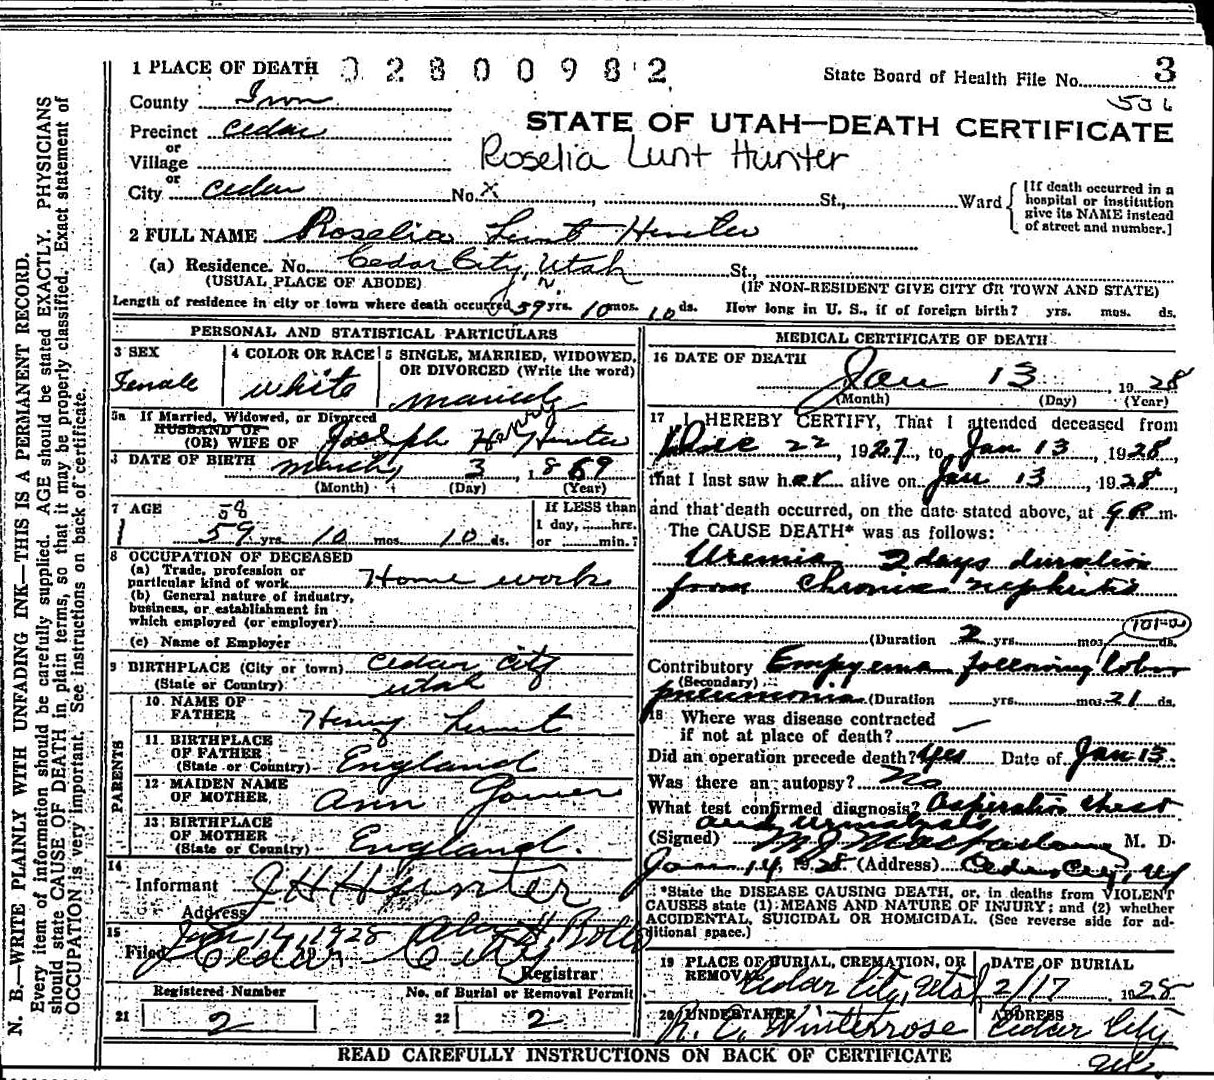 1 PLACE OF DEATH 02800982
State Board of Health File No. 3
536
County Iron
STATE OF UTAH—DEATH CERTIFICATE
Precinct Cedar
or
Village
Roselia Lunt Hunter
or
City Cedar No. X St., Ward
[If death occurred in a hospital or institution give its NAME instead of street and number.]
2 FULL NAME Roselia Lunt Hunter
(a) Residence. No. Cedar City, Utah St.,
(USUAL PLACE OF ABODE) (IF NON-RESIDENT GIVE CITY OR TOWN AND STATE)
Length of residence in city or town where death occurred 59 yrs. 10 mos. 10 ds. How long in U. S., if of foreign birth? yrs. mos. ds.
PERSONAL AND STATISTICAL PARTICULARS
3 SEX
Female
4 COLOR OR RACE
White
5 SINGLE, MARRIED, WIDOWED, OR DIVORCED (Write the word)
Married
5a If Married, Widowed, or Divorced
HUSBAND OF
(OR) WIFE OF Joseph Henry Hunter
DATE OF BIRTH March 3, 1869
(Month) (Day) (Year)
7 AGE
58
59 yrs. 10 mos. 10 ds.
If LESS than
1 day, hrs.
or min.?
8 OCCUPATION OF DECEASED
(a) Trade, profession or
particular kind of work Home work
(b) General nature of industry,
business, or establishment in
which employed (or employer)
(c) Name of Employer
9 BIRTHPLACE (City or town) Cedar City
(State or Country) Utah
PARENTS
10 NAME OF
FATHER Henry Lunt
11 BIRTHPLACE
OF FATHER
(State or Country) England
12 MAIDEN NAME
OF MOTHER Ann Gower
13 BIRTHPLACE
OF MOTHER
(State or Country) England.
14
Informant J H Hunter
Address
15
Filed Jan 14, 1928
Cedar City
Registrar
Registered Number
21 2
No. of Burial or Removal Permit
22 2
MEDICAL CERTIFICATE OF DEATH
16 DATE OF DEATH
Jan 13 1928
(Month) (Day) (Year)
17 I HEREBY CERTIFY, That I attended deceased from
Dec 22, 1927, to Jan 13, 1928,
that I last saw her alive on Jan 13, 1928,
and that death occurred, on the date stated above, at 9 P. m.
The CAUSE DEATH* was as follows:
Uremia 2 days duration
from Chronic nephritis
(Duration 2 yrs. mos. ds.
Contributory Empyema following lobar
(Secondary)
pneumonia (Duration yrs. mos. 21 ds.
18 Where was disease contracted
if not at place of death?
Did an operation precede death? Yes Date of Jan 13.
Was there an autopsy? No
What test confirmed diagnosis? Aspiration chest
and urinalysis
(Signed) M J Macfarlane M. D.
Jan 14, 1928 (Address) Cedar City, Ut
*State the DISEASE CAUSING DEATH, or, in deaths from VIOLENT
CAUSES state (1) MEANS AND NATURE OF INJURY; and (2) whether
ACCIDENTAL, SUICIDAL OR HOMICIDAL. (See reverse side for ad-
ditional space.)
19 PLACE OF BURIAL, CREMATION, OR
REMOVAL
Cedar City, Utah
DATE OF BURIAL
2/17 1928
20 UNDERTAKER
R. E. Winterrose
ADDRESS
Cedar City
Ut.
READ CAREFULLY INSTRUCTIONS ON BACK OF CERTIFICATE
N. B.—WRITE PLAINLY WITH UNFADING INK—THIS IS A PERMANENT RECORD.
Every item of information should be carefully supplied. AGE should be stated EXACTLY. PHYSICIANS
should state CAUSE OF DEATH in plain terms, so that it may be properly classified. Exact statement of
OCCUPATION is very important. See instructions on back of certificate.